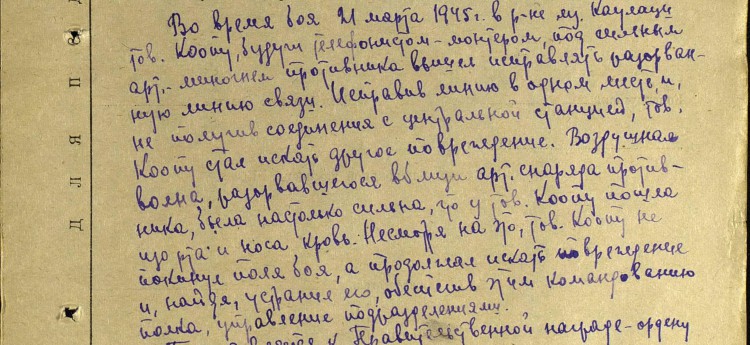 Во время боя 21 марта 1945 г. в р-не м. Каулаци
тов. Коопу, будучи телефонистом-монтером, под сильным
арт.-миногнем противника вышел исправлять разорван-
ную линию связи. Исправив линию в одном месте, и,
не получив соединения с центральной станцией, тов.
Коопу стал искать другое повреждение. Воздушная
волна, разорвавшегося вблизи арт. снаряда против-
ника, была настолько сильна, что у тов. Коопу пошла
изо рта и носа кровь. Несмотря на это, тов. Коопу не
покинул поля боя, а продолжал искать повреждение
и, найдя, устранил его, обеспечив этим командованию
полка, управление подразделениями.
к Правительственной награде-ордену
ДЛЯ П